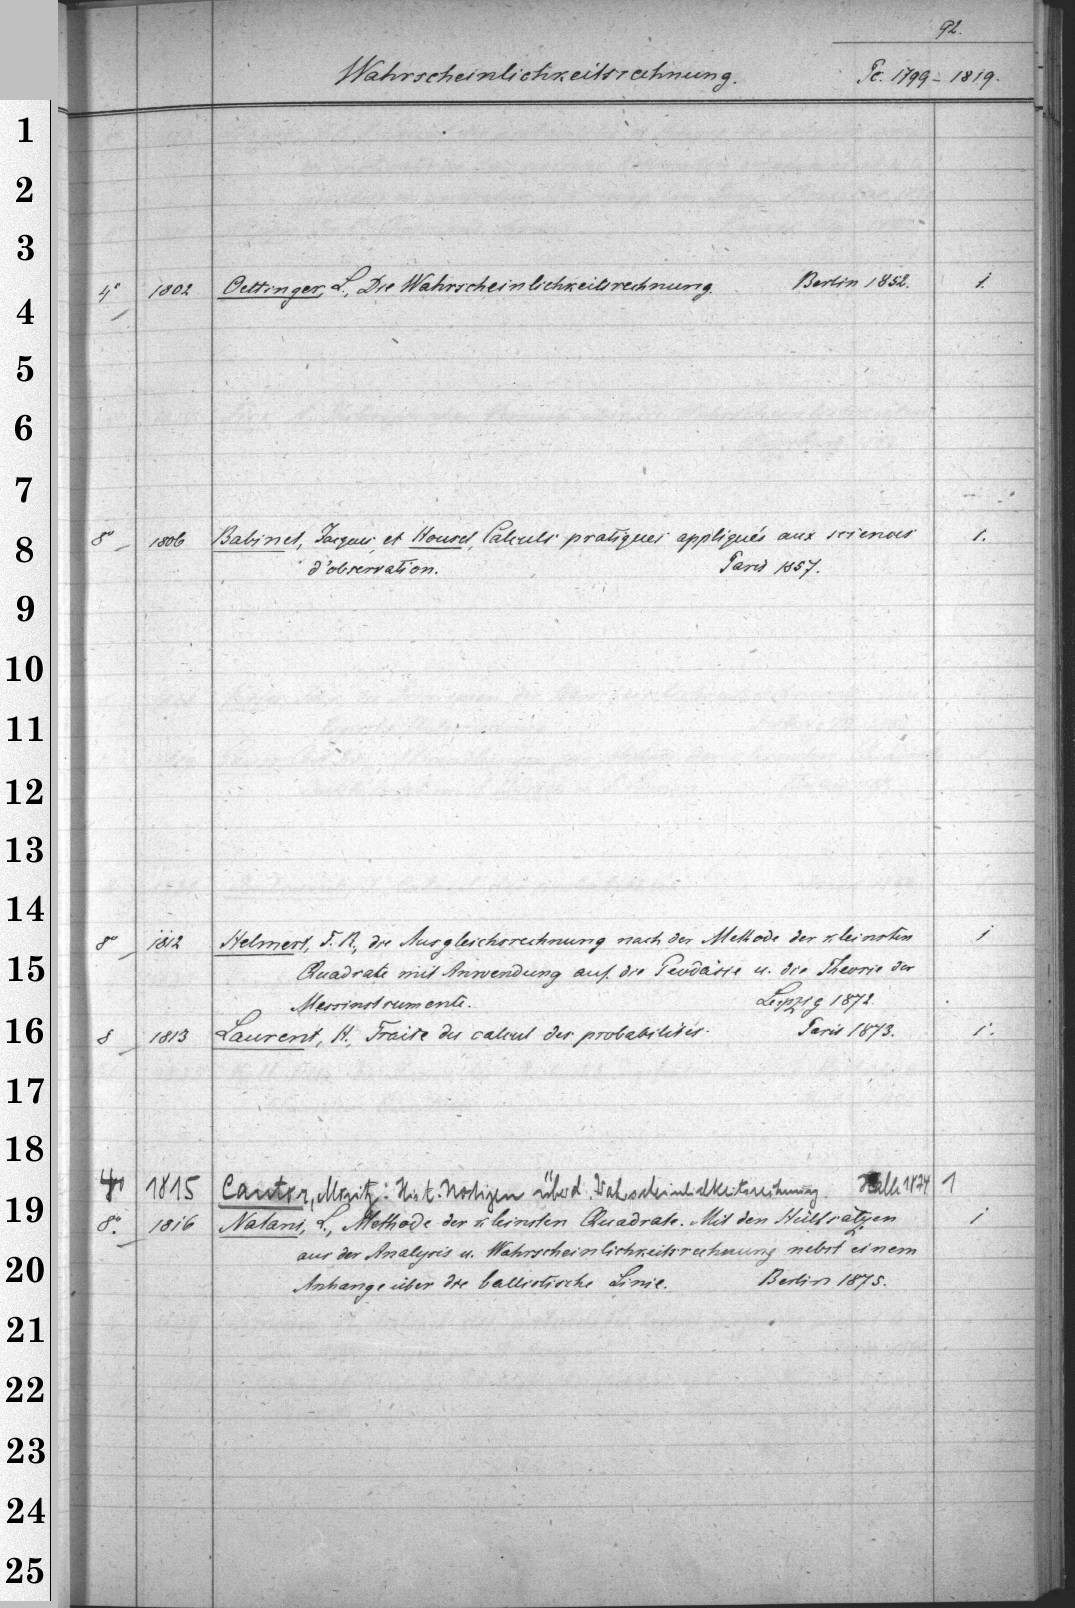 92.
Wahrscheinlichkeitsrechnung. Pc. 1799-1819.
1
2
3
4° 1802 Oettinger, L., Die Wahrscheinlichkeitsrechnung. Berlin 1852. 1.
4
5
6
7
8° 1806 Babinet, Jacques, et Housel, Calculs pratiques appliqués aux sciences 1.
8
d'observation. Paris 1857.
9
10
11
12
13
14
8° 1812 Helmert, F. R., die Ausgleichsrechnung nach der Methode der kleinsten 1
15 Quadrate mit Anwendung auf die Geodäsie u. die Theorie der
Messinstrumente. Leipzig 1872.
16 8 1813 Laurent, H., Traité du calcul des probabilités. Paris 1873. 1.
17
18
4° 1815 Cantor, Moritz: Hist. Notizen über d. Wahrscheinlichkeitsrechnung Halle 1874 1
19
8° 1816 Natani, L., Methode der kleinsten Quadrate. Mit den Hülfssätzen 1
aus der Analysis u. Wahrscheinlichkeitsrechnung nebst einem
20
Anhange über die ballistische Linie. Berlin 1875.
21
22
23
24
25